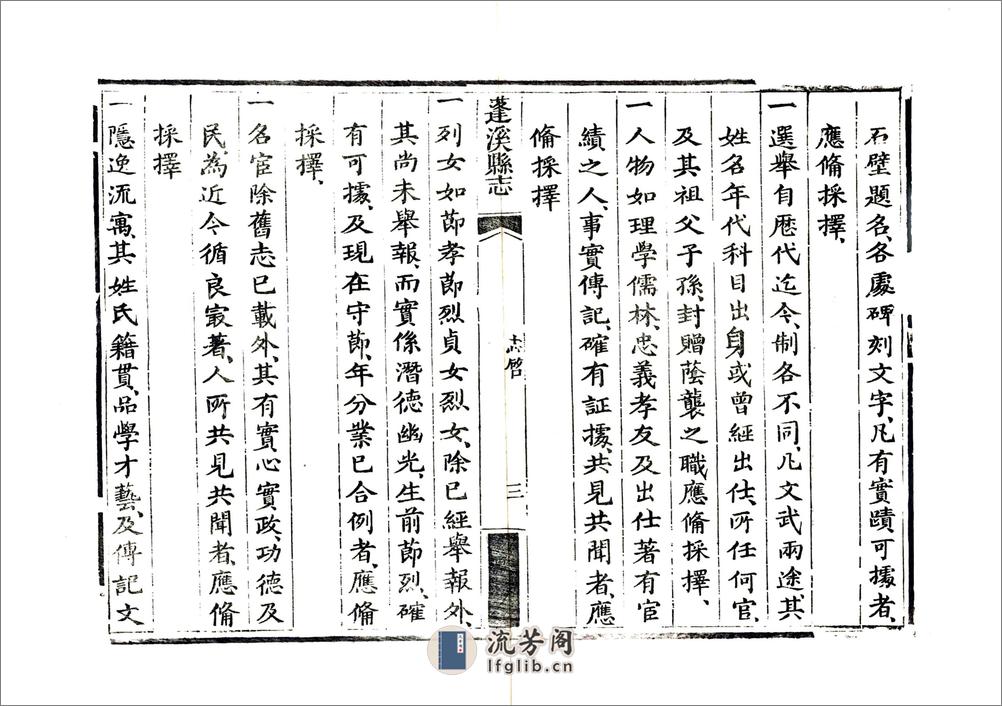 石壁題名、各處碑刻文字、凡有實蹟可據者、
應俻採擇、
一選舉自歷代迄今、制各不同、凡文武兩途、其
姓名年代科目出身或曾經出仕、所任何官、
及其祖父子孫、封贈蔭襲之職應俻採擇、
一人物如理學儒林、忠義孝友及出仕著有宦
績之人、事實傳記、確有証據、共見共聞者、應
俻採擇
蓬溪縣志
志啓
三
一列女如節孝節烈貞女烈女、除已經舉報外、
其尚未舉報、而實係潛德幽光、生前節烈、確
有可據、及現在守節、年分業已合例者、應俻
採擇、
一名宦除舊志已載外、其有實心實政、功德及
民為近今循良㝡著、人所共見共聞者、應俻
採擇
一隱逸流寓、其姓氏籍貫、品學才藝、及傳記文
流芳阁
lfglib.cn